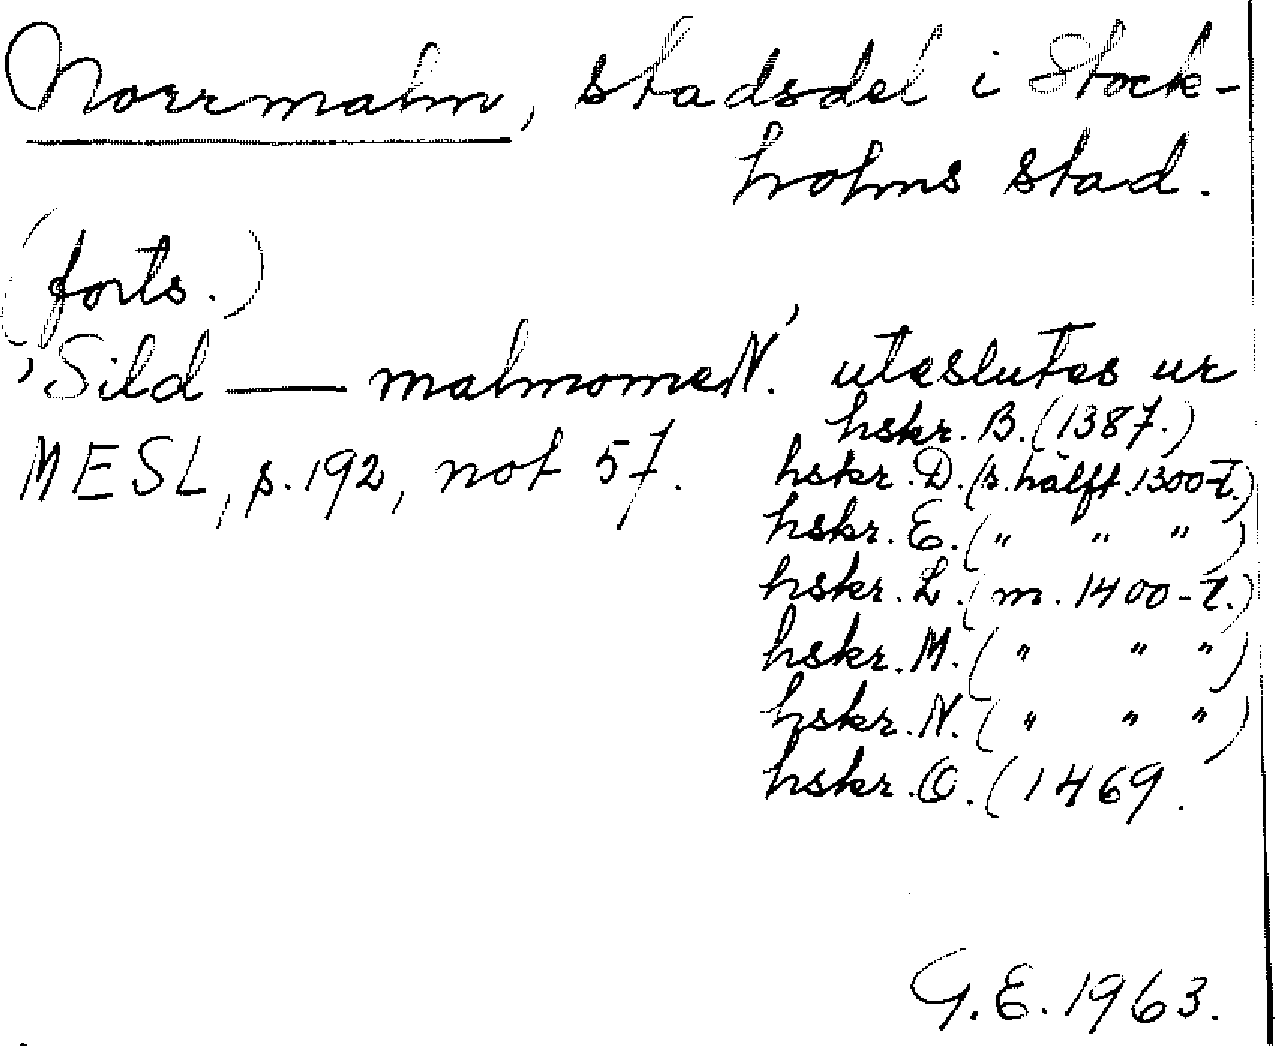 Norrmalm, stadsdel i Stock-
holms stad.
(forts.)
'Sild — malmomeN.' uteslutes ur
hskr. B. (1387.)
MESL, s. 192, not 57.
hskr. D. (s. hälft. 1300-t.)
hskr. E. (" " ")
hskr. L. (m. 1400-t.)
hskr. M. (" " ")
hskr. N. (" " ")
hskr. O. (1469.
G.E. 1963.